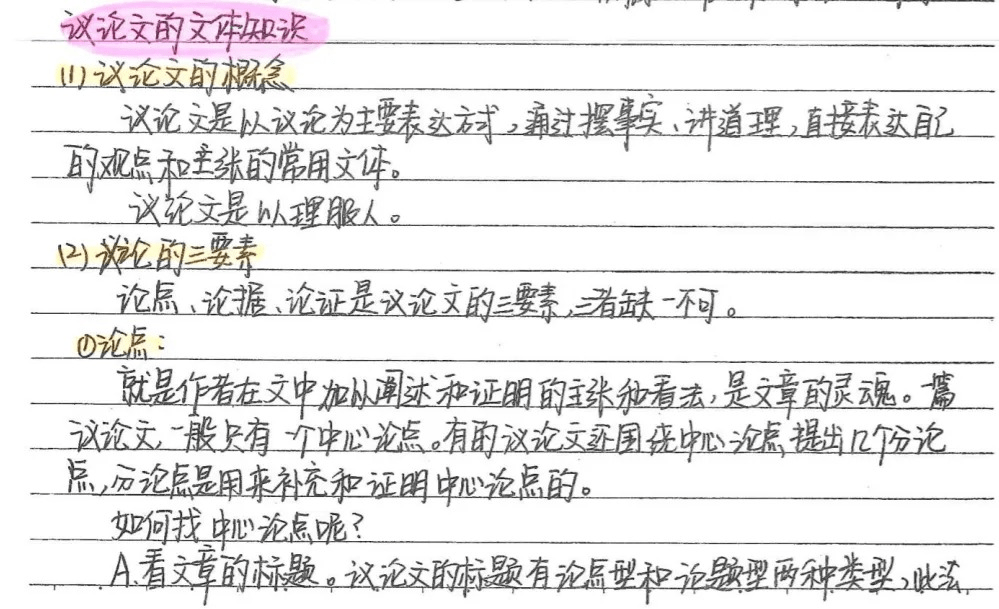 议论文的文体知识
(1)议论文的概念
议论文是以议论为主要表达方式,通过摆事实、讲道理,直接表达自己
的观点和主张的常用文体。
议论文是以理服人。
(2)议论的三要素
论点、论据、论证是议论文的三要素,三者缺一不可。
①论点:
就是作者在文中加以阐述和证明的主张和看法,是文章的灵魂。一篇
议论文一般只有一个中心论点。有的议论文还围绕中心论点提出几个分论
点,分论点是用来补充和证明中心论点的。
如何找中心论点呢?
A.看文章的标题。议论文的标题有论点型和论题型两种类型,此法